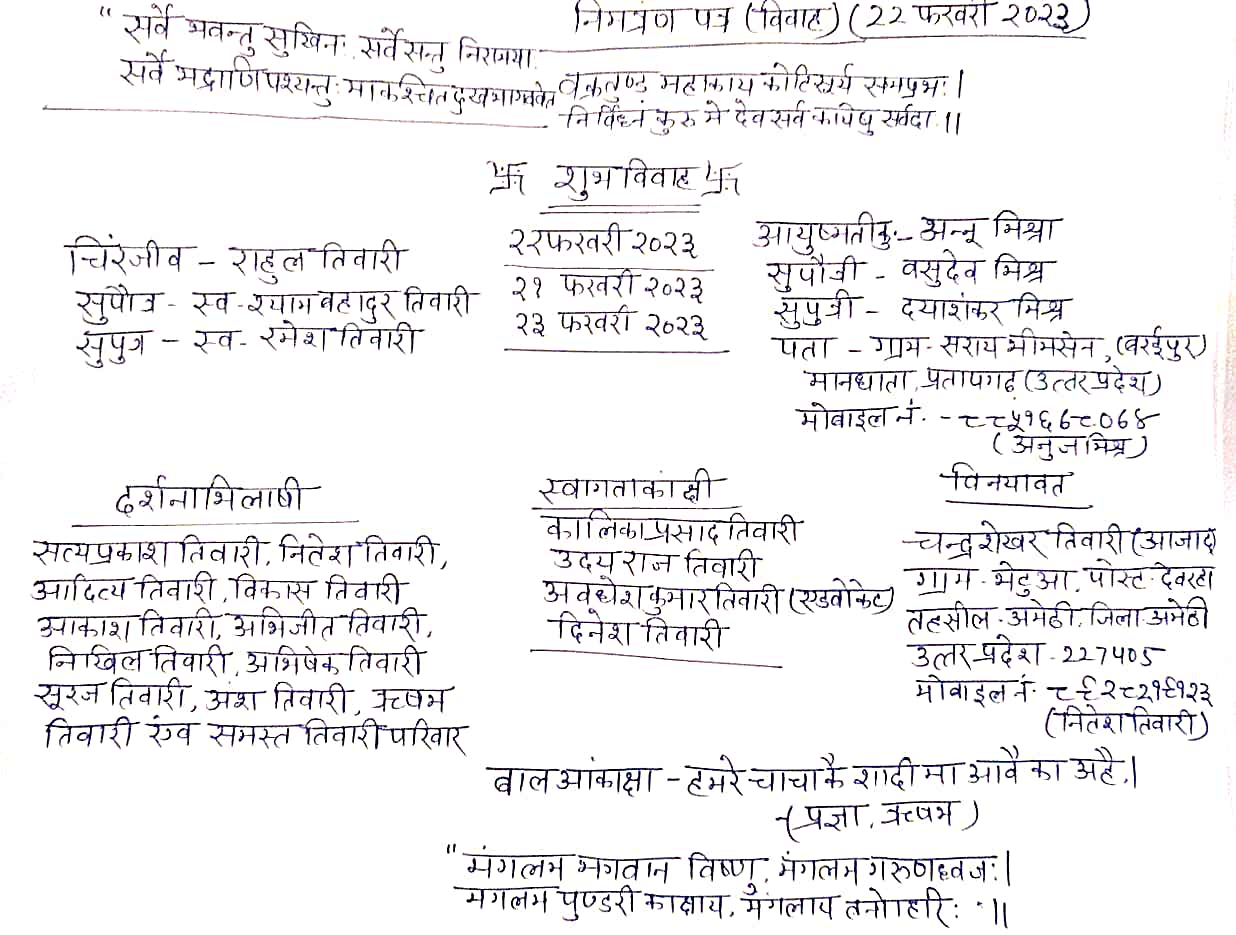 निमंत्रण पत्र (विवाह) (22 फरवरी २०२३)
"सर्वे भवन्तु सुखिनः सर्वेसन्तु निरामया
सर्वे भद्राणि पश्यन्तुः माकश्चित दुखभागभवेत
वक्रतुण्ड महाकाय कोटिसूर्य समप्रभः।
निर्विघ्नं कुरु मे देव सर्व कार्येषु सर्वदा॥
卐 शुभ विवाह 卐
चिरंजीव – राहुल तिवारी
सुपौत्र - स्व - श्याम बहादुर तिवारी
सुपुत्र – स्व - रमेश तिवारी
२२ फरवरी २०२३
२१ फरवरी २०२३
२३ फरवरी २०२३
आयुष्मती कुः– अन्नू मिश्रा
सुपौत्री - वसुदेव मिश्र
सुपुत्री – दयाशंकर मिश्र
पता – ग्राम - सराय भीमसेन, (बरईपुर)
मानधाता, प्रतापगढ़ (उत्तर प्रदेश)
मोबाइल नं. - ८८५१६७८०६४
(अनुज मिश्र)
दर्शनाभिलाषी
सत्यप्रकाश तिवारी, नितेश तिवारी,
आदित्य तिवारी, विकास तिवारी
आकाश तिवारी, अभिजीत तिवारी,
निखिल तिवारी, अभिषेक तिवारी
सूरज तिवारी, अंश तिवारी, ऋषभ
तिवारी एंव समस्त तिवारी परिवार
स्वागताकांक्षी
कालिका प्रसाद तिवारी
उदय राज तिवारी
अवधेश कुमार तिवारी (एडवोकेट)
दिनेश तिवारी
विनयावत
चन्द्रशेखर तिवारी (आजाद)
ग्राम - भेटुआ, पोस्ट - देवरहा
तहसील - अमेठी, जिला अमेठी
उत्तर प्रदेश - 227405
मोबाइल नं. ८९२८२१९१२३
(नितेश तिवारी)
बाल आंकाक्षा – हमरे चाचा कै शादी मा आवै का अहै।
- (प्रज्ञा, ऋषभ)
"मंगलम भगवान विष्णु, मंगलम गरुणध्वजः।
मंगलम पुण्डरी काक्षाय, मंगलाय तनोहरिः॥